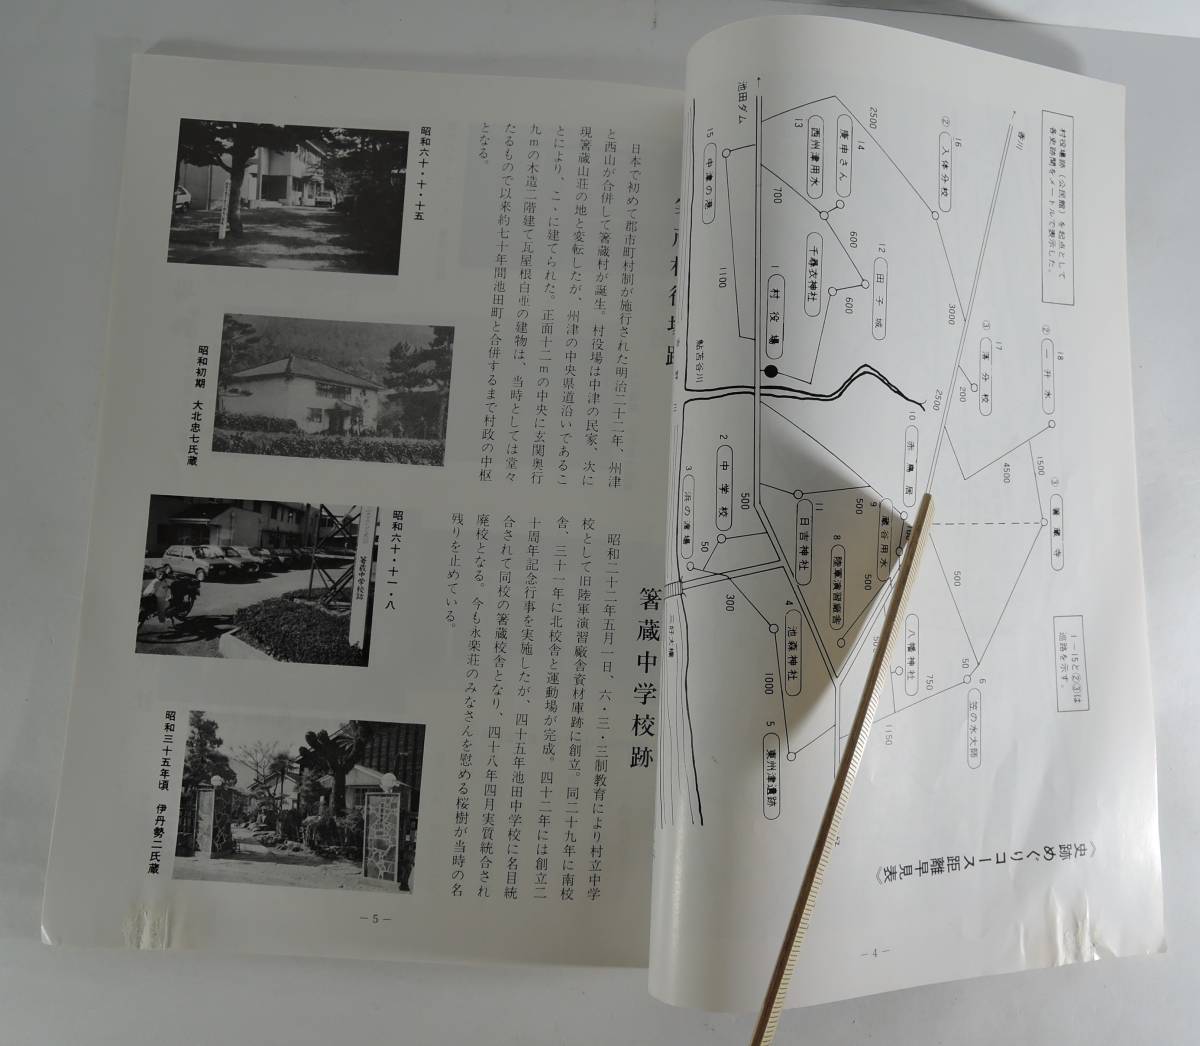 《史跡めぐりコース距離早見表》
村役場跡（公民館）を起点として
各史跡間をメートルで表示した。
1～15と②③は
巡路を示す。
池田ダム
鮎苦谷川
三好大橋
1 村役場
2 中学校
3 浜の渡場
4 池森神社
5 東州津遺跡
6 笠の水大師
八幡神社
8 陸軍演習廠舎
9 蔵谷用水
10 赤鳥居
11 日吉神社
12 田子城
千尋衣神社
13 西州津用水
14 庚申さん
15 中津の滝
16 ② 入体分校
17 ③ 落分校
18 ② 一升水
③ 箸蔵寺
2500
700
600
600
1100
3000
200
2500
4500
1500
500
500
500
500
50
300
1000
750
50
1150
－4－
日本で初めて郡市町村制が施行された明治二十二年、州津
と西山が合併して箸蔵村が誕生。村役場は中津の民家、次に
現箸蔵山荘の地と変転したが、州津の中央県道沿いであるこ
とにより、こゝに建てられた。正面十二ｍの中央に玄関奥行
九ｍの木造二階建て瓦屋根白亜の建物は、当時としては堂々
たるもので以来約七十年間池田町と合併するまで村政の中枢
となる。
昭和六十・十・十五
昭和初期　大北忠七氏蔵
箸蔵中学校跡
昭和二十二年五月一日、六・三・三制教育により村立中学
校として旧陸軍演習廠舎資材庫跡に創立。同二十九年に南校
舎、三十一年に北校舎と運動場が完成。四十二年には創立二
十周年記念行事を実施したが、四十五年池田中学校に名目統
合されて同校の箸蔵校舎となり、四十八年四月実質統合され
廃校となる。今も永楽荘のみなさんを慰める桜樹が当時の名
残りを止めている。
昭和六十・十一・八
箸蔵中学校跡
昭和三十五年頃　伊丹勢二氏蔵
－5－